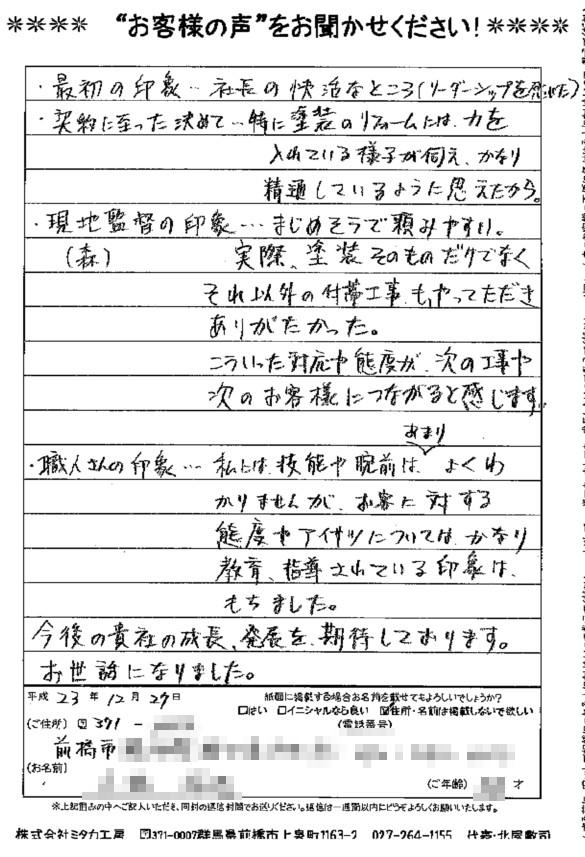 **** “お客様の声”をお聞かせください! ****
・最初の印象… 社長の快活なところ(リーダーシップを感じた)
・契約に至った決めて…特に塗装のリフォームには、力を
入れている様子が伺え、かなり
精通しているように思えたから。
・現地監督の印象… まじめそうで頼みやすい。
(森) 実際、塗装そのものだけでなく
それ以外の付帯工事も、やってただき
ありがたかった。
こういった対応や態度が、次の工事や
次のお客様につながると感じます。
あまり
・職人さんの印象… 私は、技能や腕前は よくわ
かりませんが、お客に対する
態度やアイサツについては、かなり
教育、指導されている印象は、
もちました。
今後の貴社の成長、発展を、期待しております。
お世話になりました。
平成 23 年 12 月 27 日 紙面に掲載する場合お名前を載せてもよろしいでしょうか?
(ご住所) 〒 371 - □はい □イニシャルなら良い ☑住所・名前は掲載しないで欲しい
(電話番号)
前橋市
(お名前) (ご年齢) 才
※上記囲みの中へご記入いただき、同封の返信封筒でお送りください。返信は一週間以内にどうぞよろしくお願いいたします。
株式会社ミタカ工房 〒371-0007群馬県前橋市上泉町1163-2 027-264-1155 代表・北尾敷司